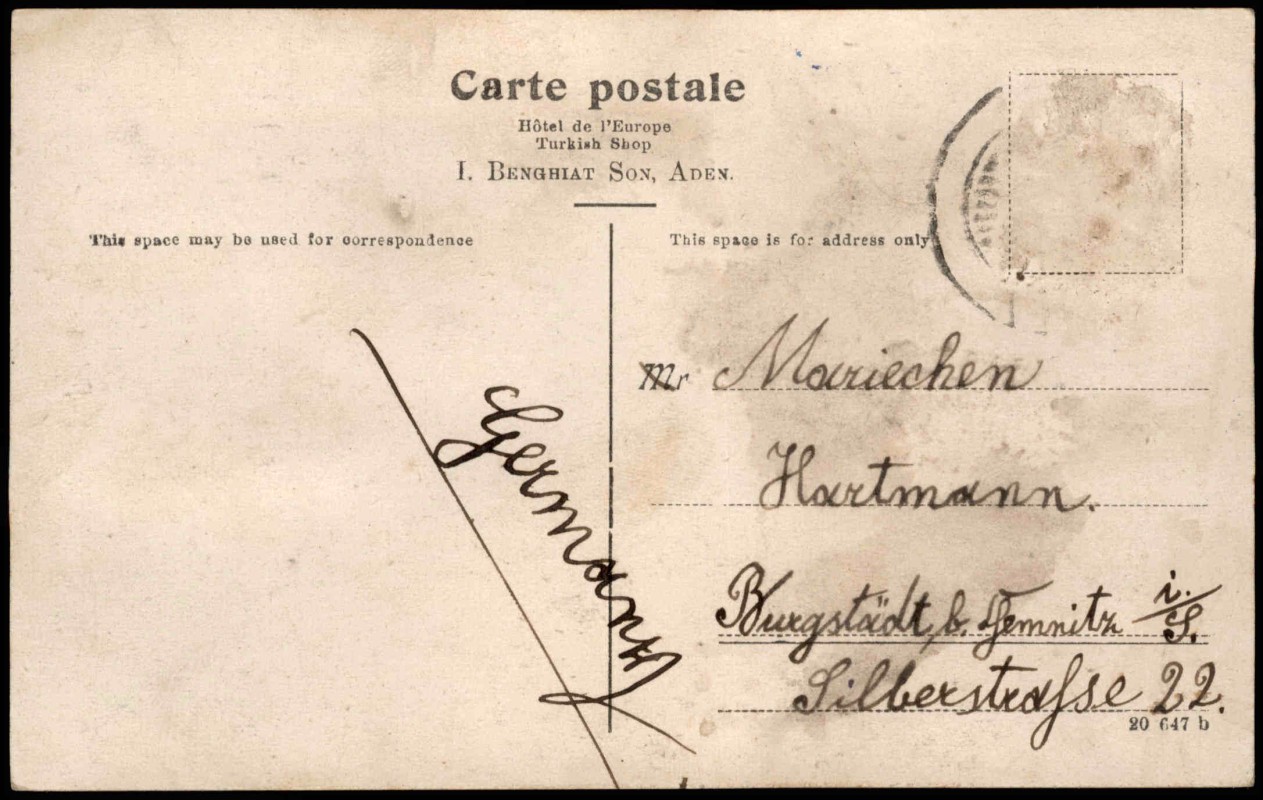 Carte postale
Hôtel de l'Europe
Turkish Shop
I. BENGHIAT SON, ADEN.
This space may be used for correspondence
This space is for address only
Germany
Mr Mariechen
Hartmann.
Burgstädt, b. Chemnitz i./S.
Silberstraſse 22.
20 647 b